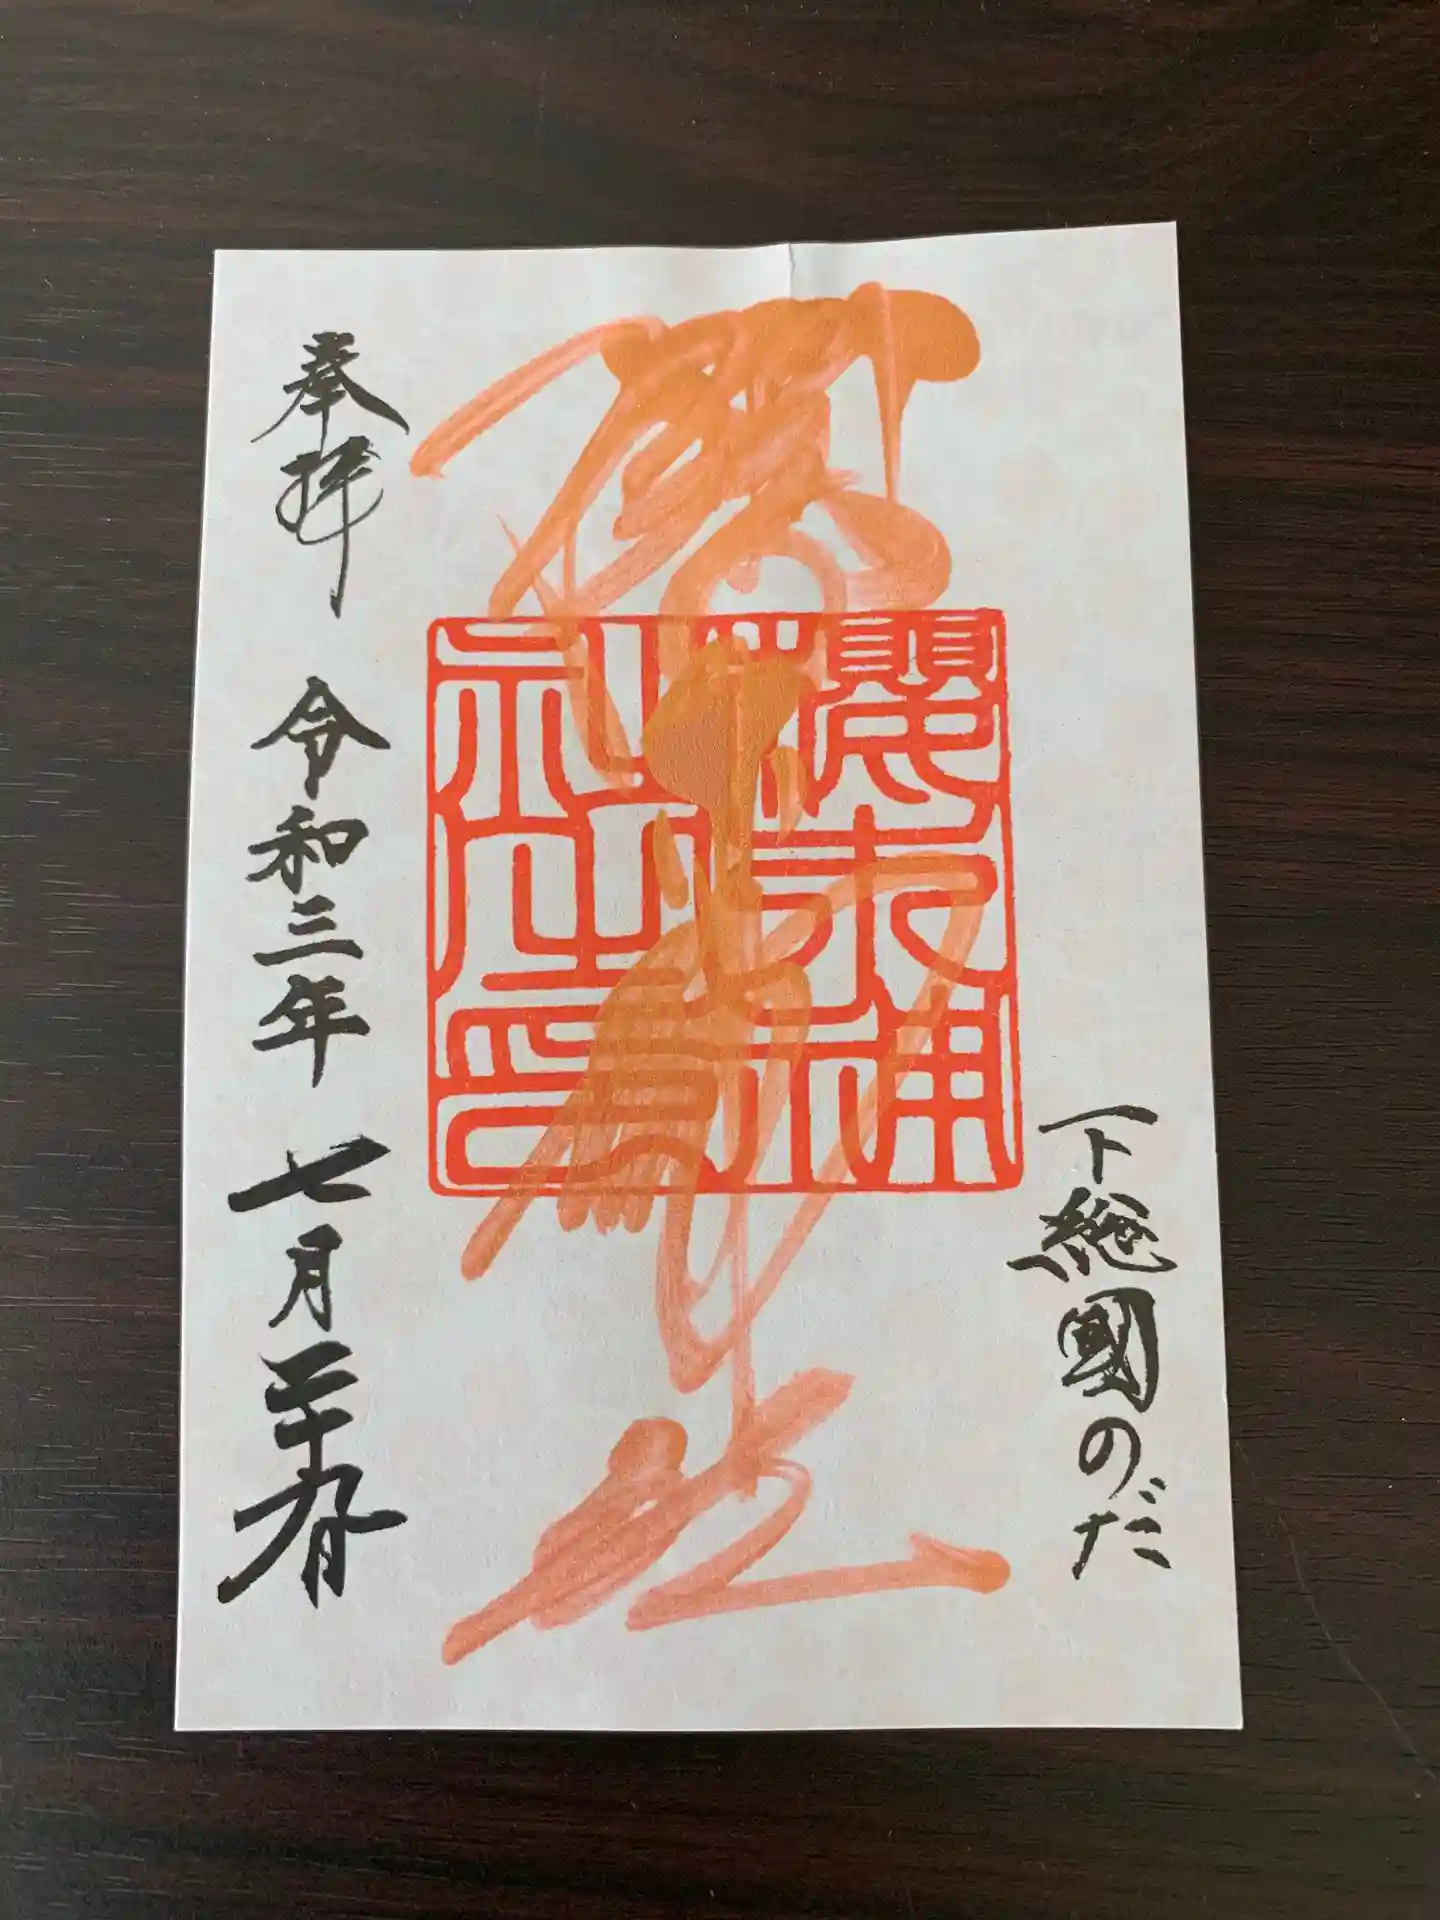 下総國のだ
櫻木神
社之印
奉拝 令和三年 七月二十九日